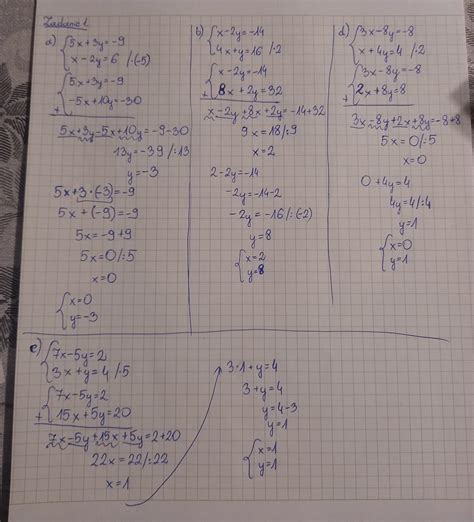 Zadanie 1.
a) {5x+3y=-9
x-2y=6 /·(-5)
{5x+3y=-9
+ -5x+10y=-30
5x+3y-5x+10y=-9-30
13y=-39/:13
y=-3
5x+3·(-3)=-9
5x+(-9)=-9
5x=-9+9
5x=0/:5
x=0
{x=0
y=-3
b) {x-2y=-14
4x+y=16 /·2
{x-2y=-14
+ 8x+2y=32
x-2y+8x+2y=-14+32
9x=18/:9
x=2
2-2y=-14
-2y=-14-2
-2y=-16/:(-2)
y=8
{x=2
y=8
d) {3x-8y=-8
x+4y=4 /·2
{3x-8y=-8
+ 2x+8y=8
3x-8y+2x+8y=-8+8
5x=0/:5
x=0
0+4y=4
4y=4/:4
y=1
{x=0
y=1
e) {7x-5y=2
3x+y=4 /·5
{7x-5y=2
+ 15x+5y=20
7x-5y+15x+5y=2+20
22x=22/:22
x=1
3·1+y=4
3+y=4
y=4-3
y=1
{x=1
y=1